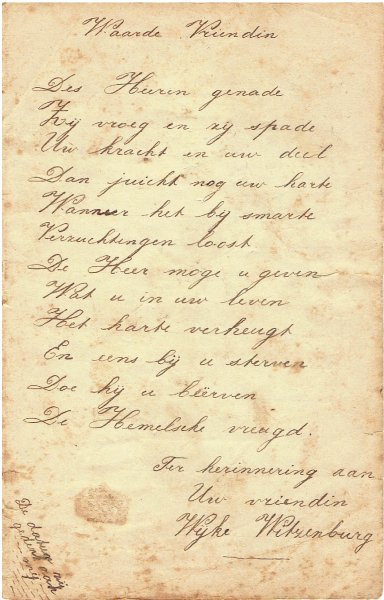 Waarde Vriendin
Des Heeren genade
Zij vroeg en zij spade
Uw kracht en uw deel
Dan juicht nog uw harte
Wanneer het bij smarte
Verzuchtingen loost.
De Heer moge u geven
Wat u in uw leven
Het harte verheugt
En eens bij u sterven
Doe hij u beërven
De Hemelsche vreugd.
Ter herinnering aan
Uw vriendin
Wijke Witzenburg
De